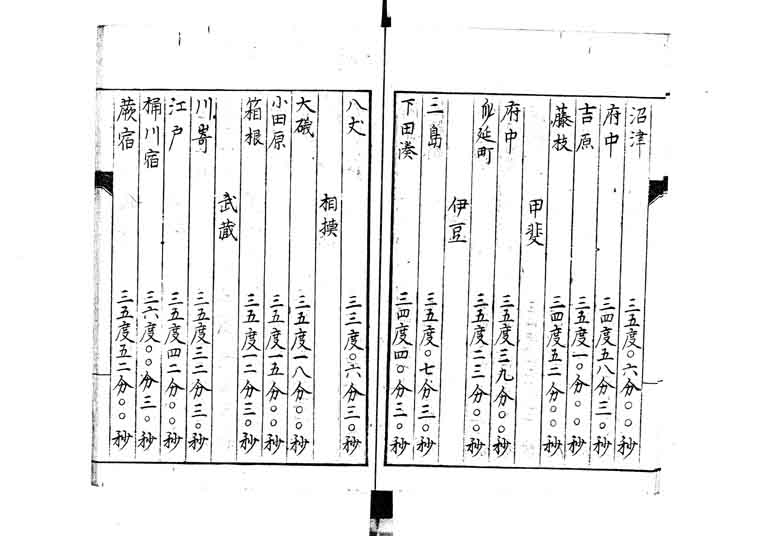 沼津 三五度〇六分〇〇秒
府中 三四度五八分三〇秒
吉原 三五度一〇分〇〇秒
藤枝 三四度五二分〇〇秒
甲斐
府中 三五度三九分〇〇秒
身延町 三五度二三分〇〇秒
伊豆
三島 三五度〇七分三〇秒
下田湊 三四度四〇分三〇秒
八丈 三三度〇六分三〇秒
相摸
大磯 三五度一八分〇〇秒
小田原 三五度一五分〇〇秒
箱根 三五度一二分三〇秒
武蔵
川嵜 三五度三二分三〇秒
江戸 三五度四二分〇〇秒
桶川宿 三六度〇〇分三〇秒
蕨宿 三五度五二分〇〇秒